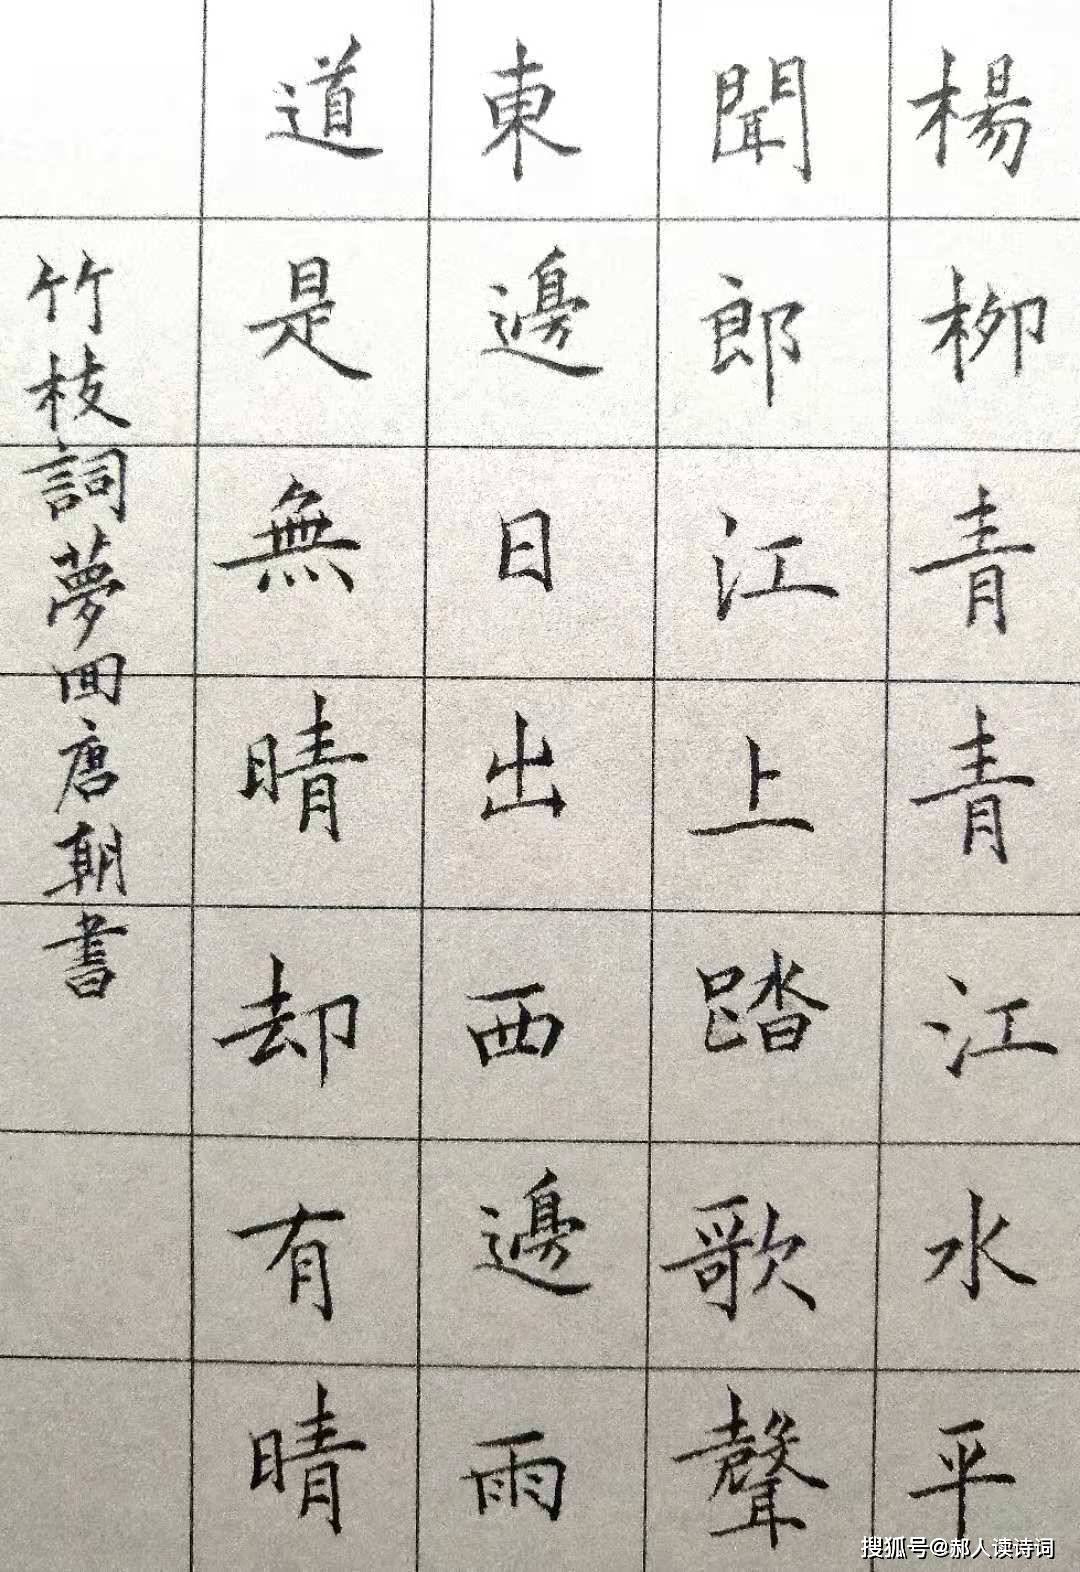 楊柳青青江水平
聞郎江上踏歌聲
東邊日出西邊雨
道是無晴却有晴
竹枝詞夢回唐朝書
搜狐号@郝人读诗词